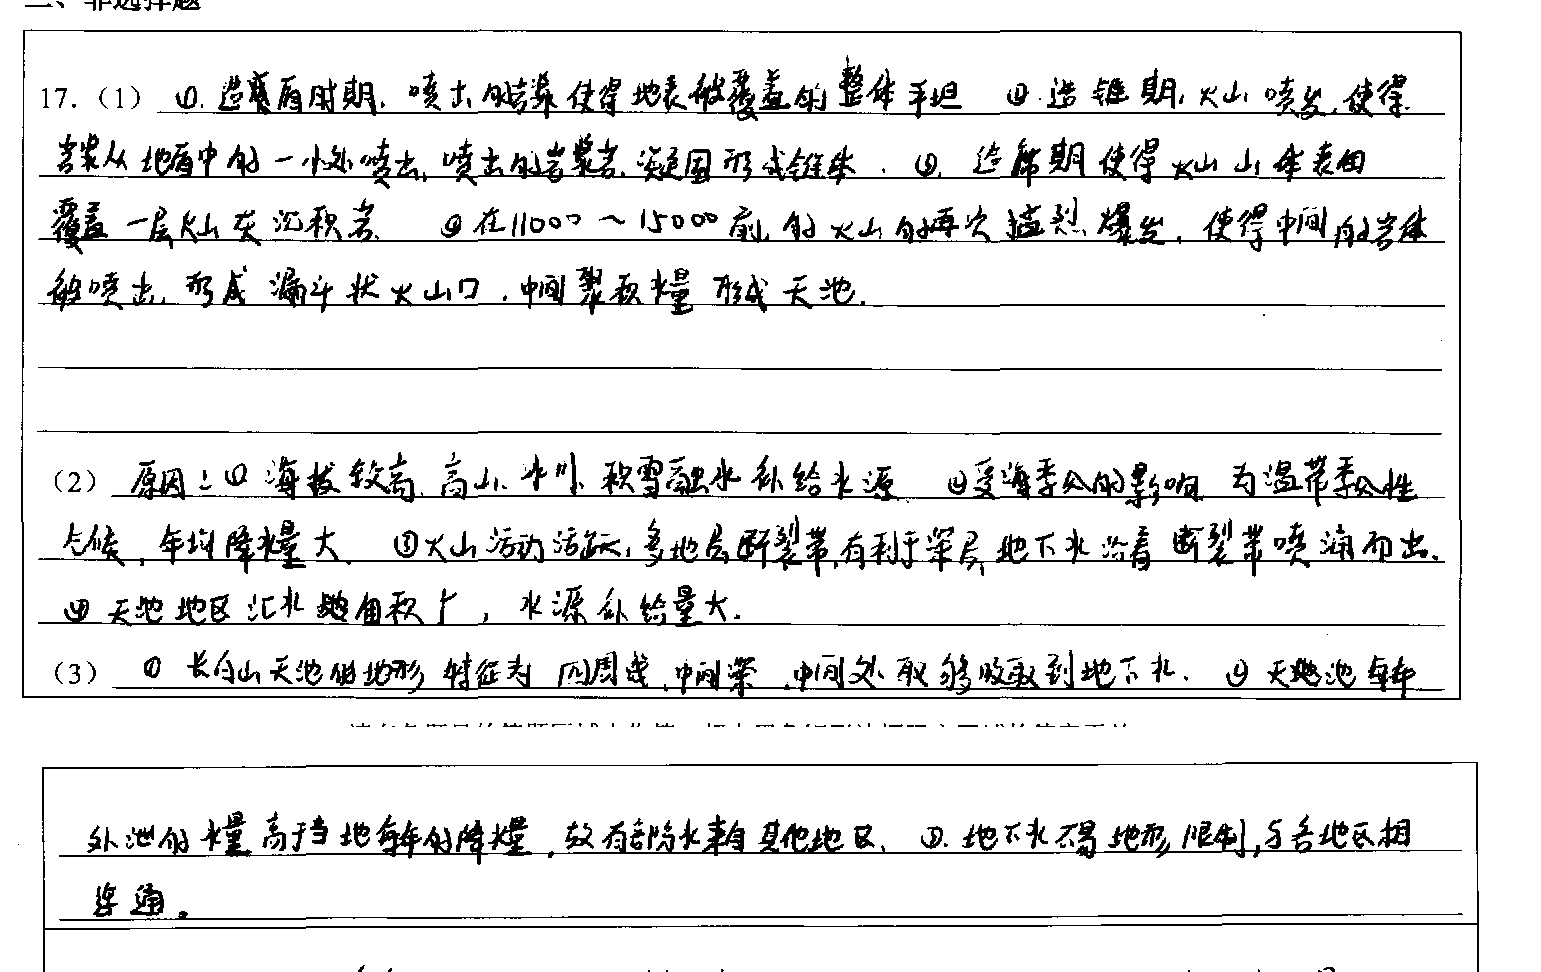 二、非选择题
17.（1） ①. 造盾时期，喷出的岩浆使得地表被覆盖的整体平坦 ②. 造锥期，火山喷发，使得
岩浆从地盾中的一小处喷出，喷出的岩浆岩，凝固形成锥体. ③. 造席期使得火山山体表面
覆盖一层火山灰沉积岩. ④在11000～15000前，的火山的再次猛烈爆发，使得中间的岩体
被喷出，形成漏斗状火山口，中间聚积水量形成天池.
（2） 原因：①海拔较高，高山、冰川、积雪融水补给水源 ②受海季风的影响，为温带季风性
气候，年均降水量大. ③火山活动活跃，多地层断裂带，有利于深层地下水沿着断裂带喷涌而出.
④天池地区汇水地面积广，水源补给量大.
（3） ①长白山天池的地形特征为四周浅，中间深，中间处能够吸取到地下水. ②天池每年
外泄的水量高于当地每年的降水量，故有部分水来自其他地区. ③. 地下水不易地形限制，与各地区相
连通。